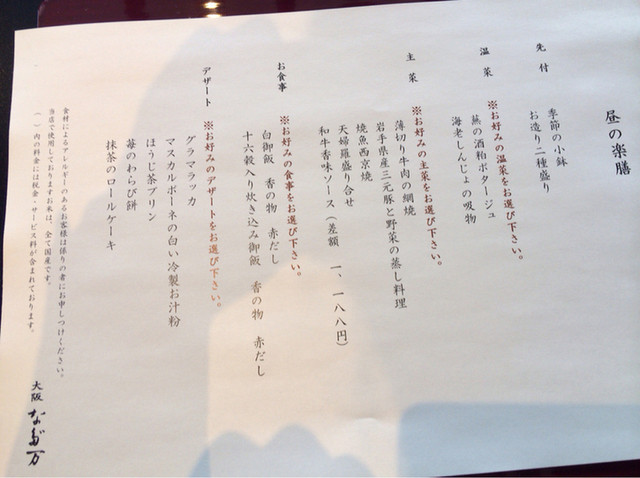 昼の楽膳
先付
季節の小鉢
お造り二種盛り
温菜
※お好みの温菜をお選び下さい。
蕪の酒粕ポタージュ
海老しんじょの吸物
主菜
※お好みの主菜をお選び下さい。
薄切り牛肉の網焼
岩手県産三元豚と野菜の蒸し料理
焼魚西京焼
天婦羅盛り合せ
和牛香味ソース（差額　一、一八八円）
お食事
※お好みの食事をお選び下さい。
白御飯　香の物　赤だし
十六穀入り炊き込み御飯　香の物　赤だし
デザート
※お好みのデザートをお選び下さい。
グラマラッカ
マスカルポーネの白い冷製お汁粉
ほうじ茶プリン
苺のわらび餅
抹茶のロールケーキ
食材によるアレルギーのあるお客様は係りの者にお申しつけください。
当店で使用しておりますお米は、全て国産です。
（　）内の料金には税金・サービス料が含まれております。
大阪 なだ万